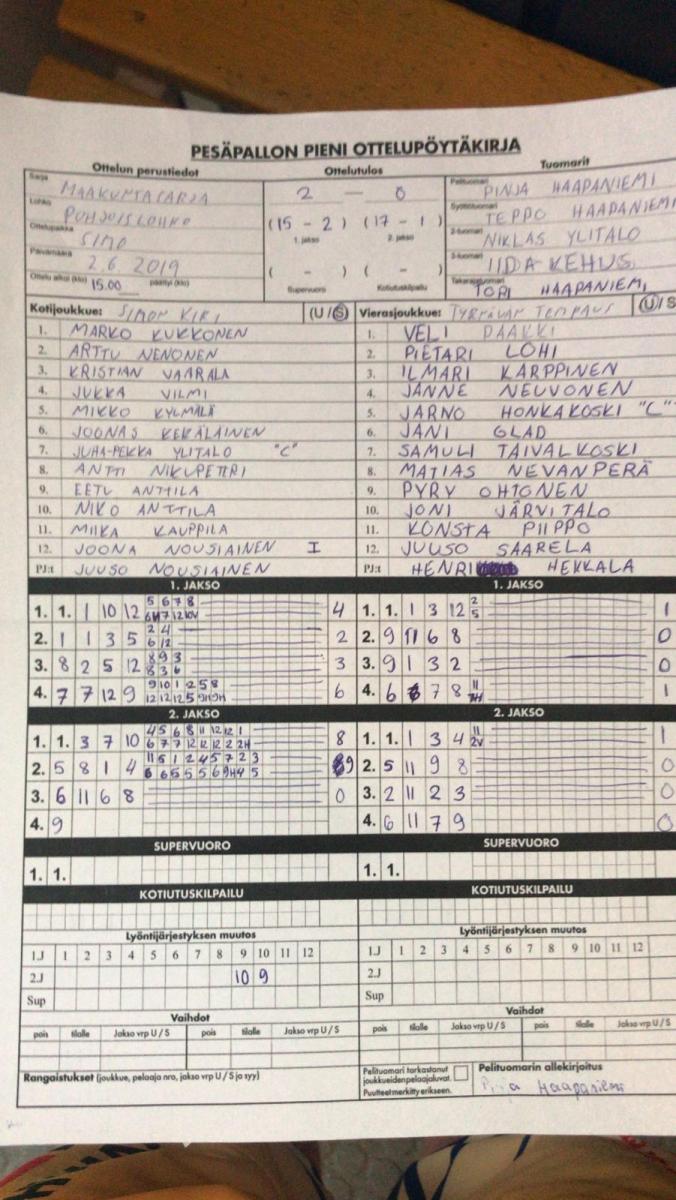 PESÄPALLON PIENI OTTELUPÖYTÄKIRJA
Ottelun perustiedot Ottelutulos Tuomarit
Sarja MAAKUNTASARJA 2 — 0 Pelituomari PINJA HAAPANIEMI
Lohko POHJOISLOHKO (15 - 2) (17 - 1) Syöttötuomari TEPPO HAAPANIEMI
Ottelupaikka SIMO 1. jakso 2. jakso 2-tuomari NIKLAS YLITALO
Päivämäärä 2.6.2019 ( - ) ( - ) 3-tuomari IIDA KEHUS
Ottelu alkoi (klo) 15.00 päättyi (klo) Supervuoro Kotiutuskilpailu Takarajatuomari TORI HAAPANIEMI
Kotijoukkue: SIMON KIRI (U/S) Vierasjoukkue: TYRNÄVÄN TEMPAUS (U/S
1. MARKO KUKKONEN 1. VELI PAAKKI
2. ARTTU NENONEN 2. PIETARI LOHI
3. KRISTIAN VAARALA 3. ILMARI KARPPINEN
4. JUKKA VILMI 4. JANNE NEUVONEN
5. MIKKO KYLMÄLÄ 5. JARNO HONKAKOSKI "C"
6. JOONAS KEKÄLÄINEN 6. JANI GLAD
7. JUHA-PEKKA YLITALO "C" 7. SAMULI TAIVALKOSKI
8. ANTTI NIKUPETERI 8. MATIAS NEVANPERÄ
9. EETU ANTTILA 9. PYRY OHTONEN
10. NIKO ANTTILA 10. JONI JÄRVITALO
11. MIIKA KAUPPILA 11. KONSTA PIIPPO
12. JOONA NOUSIAINEN I 12. JUUSO SAARELA
PJ:t JUUSO NOUSIAINEN PJ:t HENRI HEKKALA
1. JAKSO 1. JAKSO
1. 1. 1 10 12 5 6 7 8 4 1. 1. 1 3 12 2 5 1
2. 1 1 3 5 2 4 6 12 2 2. 9 11 6 8 0
3. 8 2 5 12 8 9 3 8 3 6 3 3. 9 1 3 2 0
4. 7 7 12 9 9 10 1 2 5 8 6 4. 6 7 8 11 1
2. JAKSO 2. JAKSO
1. 1. 3 7 10 4 5 6 8 11 12 12 1 6 7 7 12 12 12 2 2H 8 1. 1. 1 3 4 11 2V 1
2. 5 8 1 4 11 5 1 2 4 5 7 2 3 6 6 5 5 5 6 9H 4 5 9 2. 5 11 9 8 0
3. 6 11 6 8 0 3. 2 11 2 3 0
4. 9 4. 6 11 7 9 0
SUPERVUORO SUPERVUORO
1. 1. 1. 1.
KOTIUTUSKILPAILU KOTIUTUSKILPAILU
Lyöntijärjestyksen muutos Lyöntijärjestyksen muutos
1.J 1 2 3 4 5 6 7 8 9 10 11 12 1.J 1 2 3 4 5 6 7 8 9 10 11 12
2.J 10 9 2.J
Sup Sup
Vaihdot Vaihdot
pois tilalle Jakso vrp U / S pois tilalle Jakso vrp U / S pois tilalle Jakso vrp U / S pois tilalle Jakso vrp U / S
Rangaistukset (joukkue, pelaaja nro, jakso vrp U / S ja syy) Pelituomari tarkastanut joukkueiden pelaajaluvat. Puutteet merkitty erikseen. Pelituomarin allekirjoitus
Pinja Haapaniemi